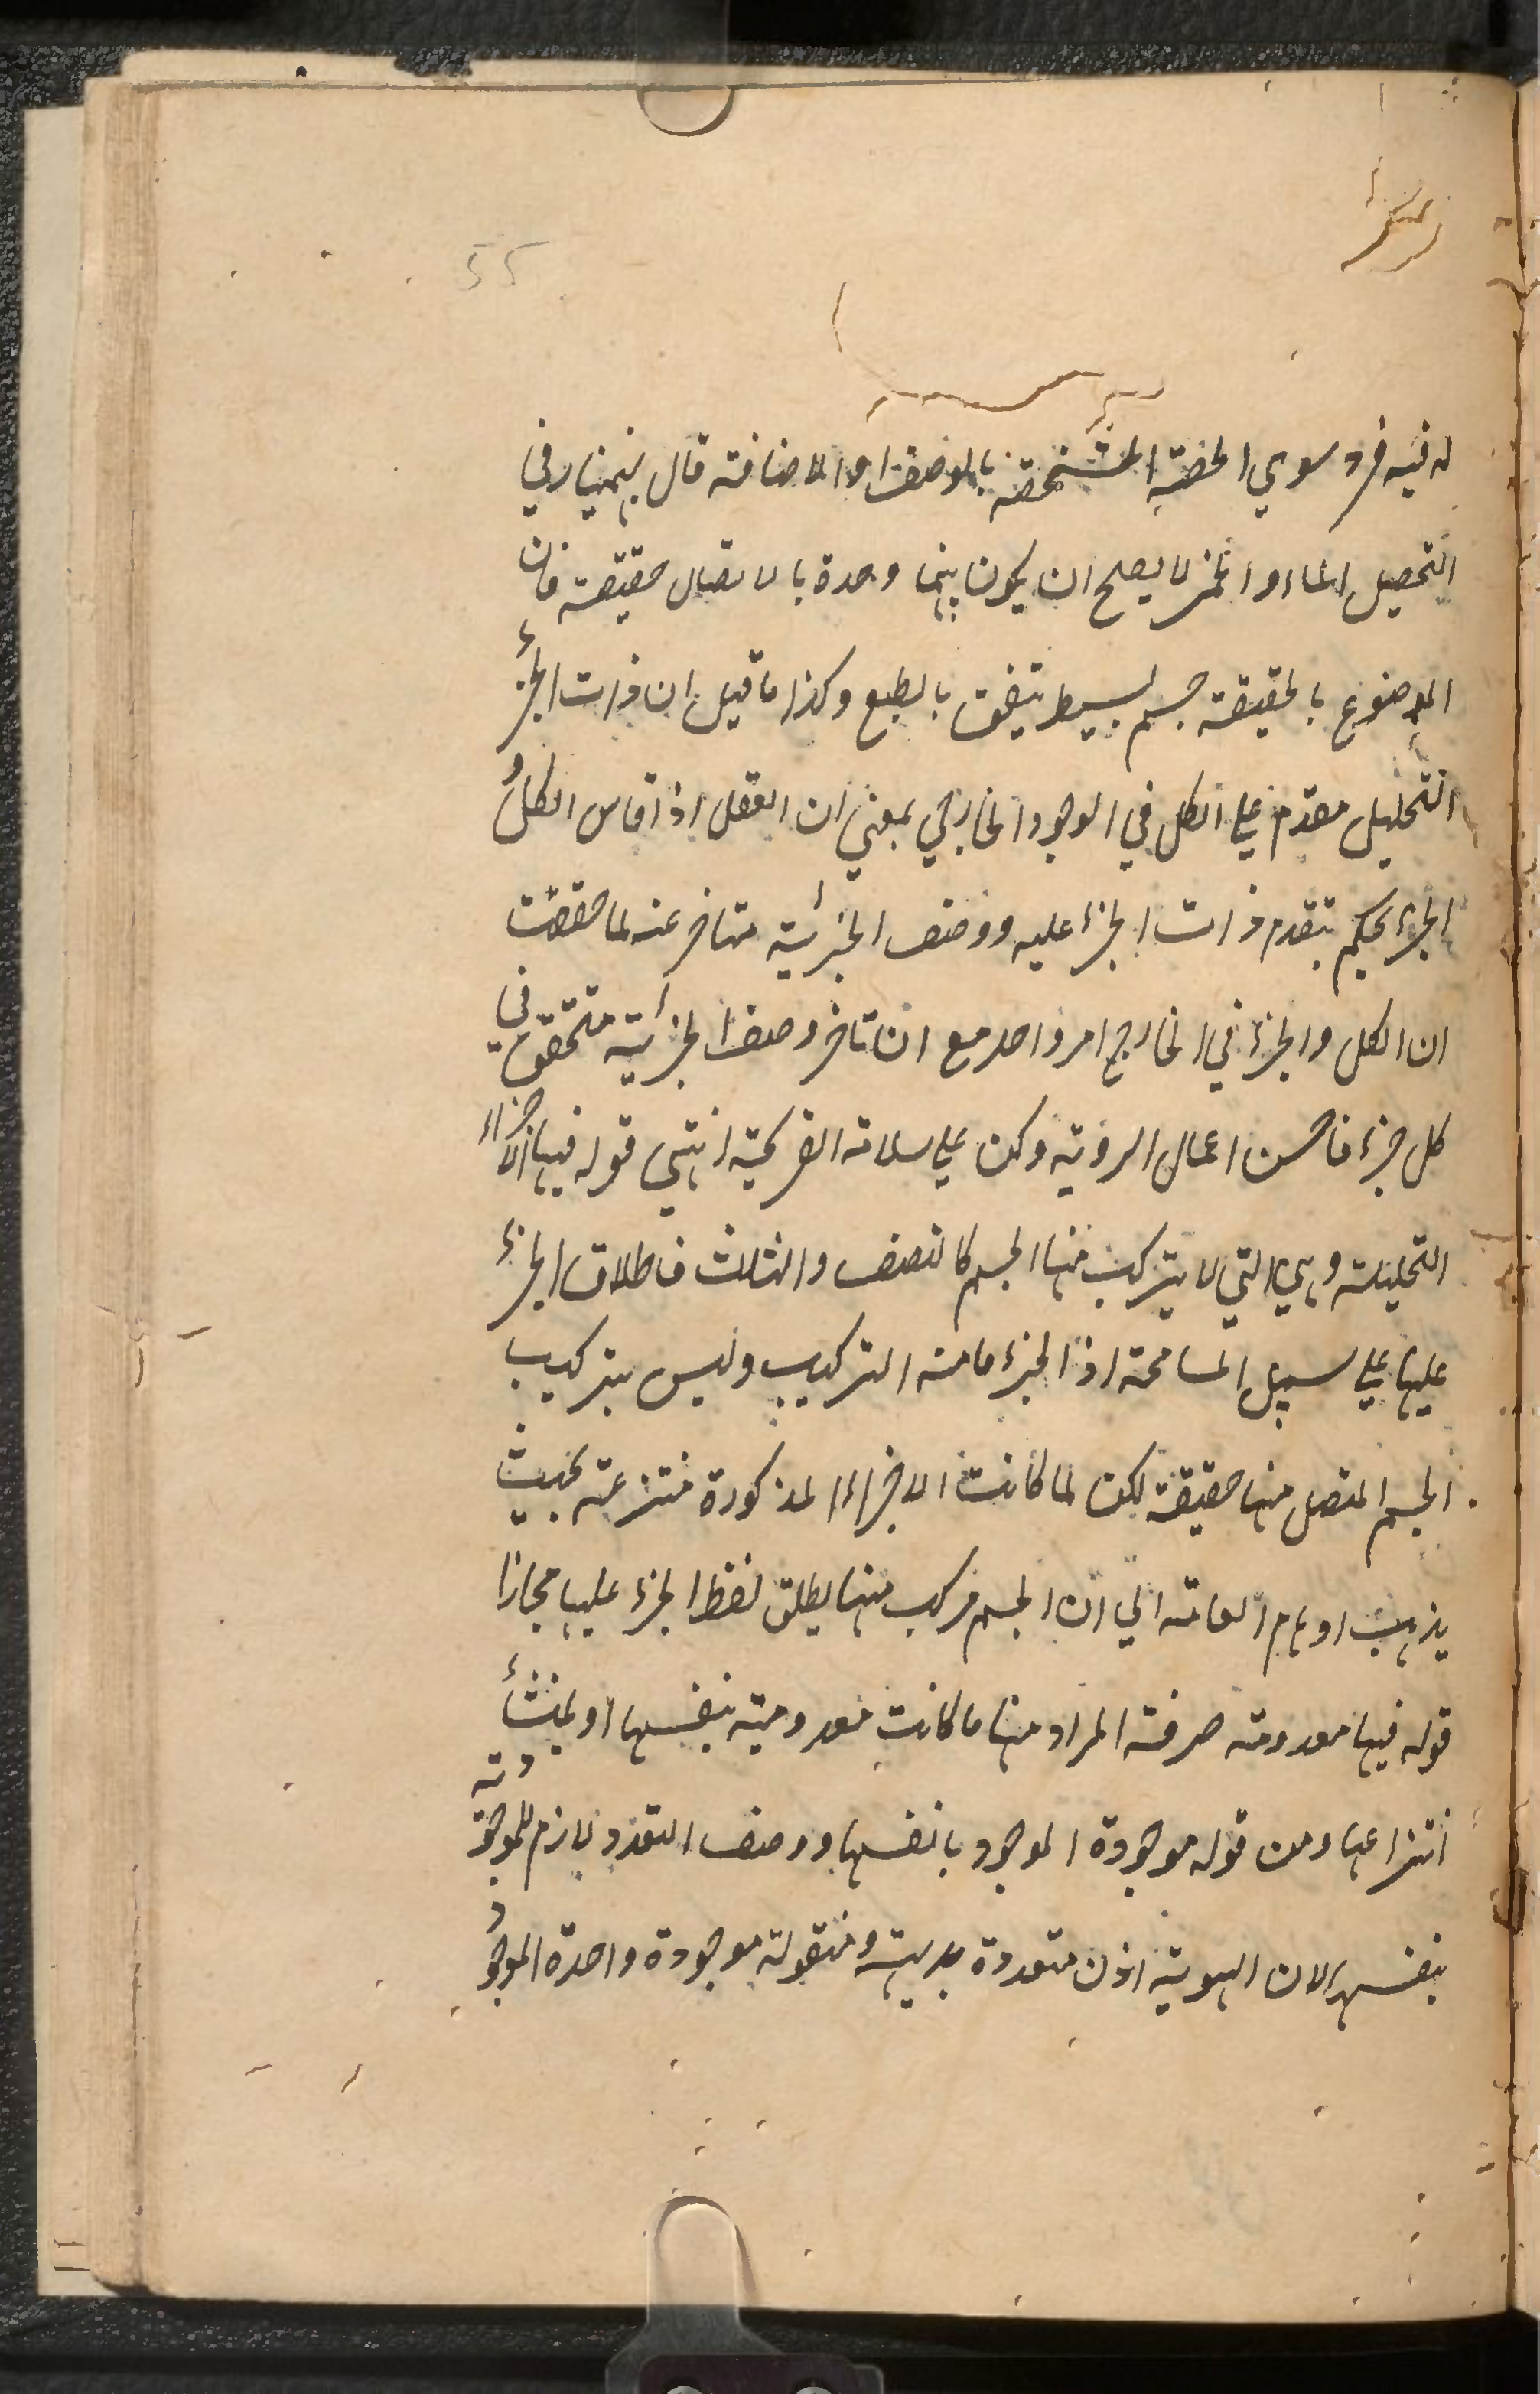 55
له فيه فرد سوى الحصة المتشخصة بالوصف او الاضافة قال بهمنيار في
التحصيل الماء والخمر لا يصلح ان يكون بينهما وحدة بالاتصال حقيقة فان
الموضوع بالحقيقة جسم بسيط يتفق بالطبع وكذا ما قيل ان ذات الجزء
التحليلي مقدم علي الكل في الوجود الخارجي بمعني ان العقل اذا قاس الكل و
الجزء يحكم بتقدم ذات الجزء عليه ووصف الجزئية متاخر عنه لما حققت
ان الكل والجزء في الخارج امر واحد مع ان تاخر وصف الجزئية متحقق في
كل جزء فاحسن اعمال الروية وكن علي سلامة القريحة انتهي قوله فيها الاجزاء
التحليلية وهي التي لا يتركب منها الجسم كالنصف والثلث فاطلاق الجزء
عليها علي سبيل المسامحة اذ الجزء ما منه التركيب وليس بتركيب
الجسم المتصل منها حقيقة لكن لما كانت الاجزاء المذكورة منتزعة بحيث
يذهب اوهام العامة الي ان الجسم مركب منها يطلق لفظ الجزء عليها مجازا
قوله فيها معدومة صرفة المراد منها ما كانت معدومية بنفسها او بمنشأ
انتزاعها ومن قوله موجودة الموجود بانفسها ووصف التعدد لازم للموجودة
بنفسها لان الهوية اذن متعددة بديهة ومنقولة موجودة واحدة الموجود